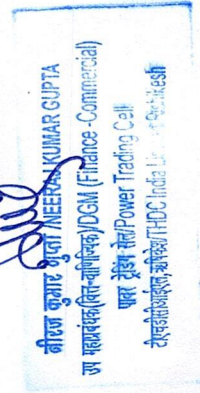 नीरज कुमार गुप्ता/NEERAJ KUMAR GUPTA
उप महाप्रबंधक(वित्त-वाणिज्यिक)/DGM (Finance -Commercial)
पावर ट्रेडिंग सेल/Power Trading Cell
टीएचडीसीआईएल, ऋषिकेश/THDC India Rishikesh